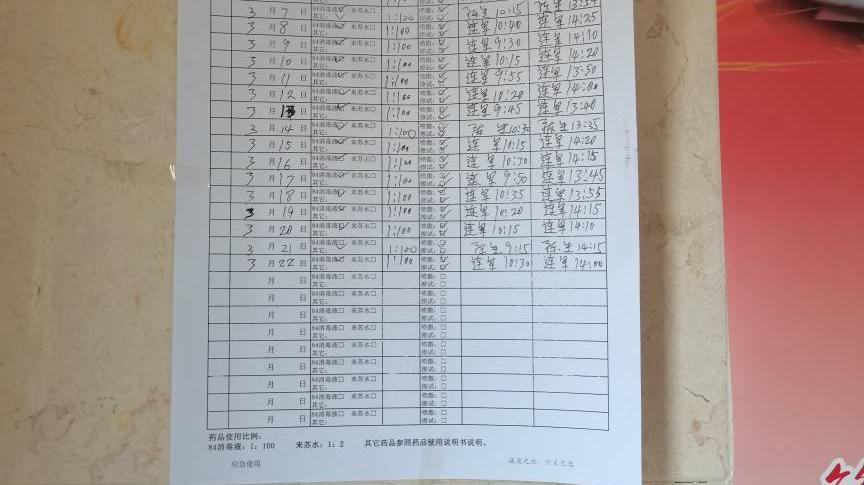 3月7日 84消毒液☑ 来苏水□ 其它: 1:100 喷撒:☑ 擦试:☑ 陈生 10:15 陈生 13:54
3月8日 84消毒液☑ 来苏水□ 其它: 1:100 喷撒:☑ 擦试:☑ 连军 10:40 连军 14:25
3月9日 84消毒液☑ 来苏水□ 其它: 1:100 喷撒:☑ 擦试:☑ 连军 9:30 连军 14:10
3月10日 84消毒液☑ 来苏水□ 其它: 1:100 喷撒:☑ 擦试:☑ 连军 10:15 连军 14:20
3月11日 84消毒液☑ 来苏水□ 其它: 1:100 喷撒:☑ 擦试:☑ 连军 9:55 连军 13:50
3月12日 84消毒液☑ 来苏水□ 其它: 1:100 喷撒:☑ 擦试:☑ 连军 10:20 连军 14:00
3月13日 84消毒液☑ 来苏水□ 其它: 1:100 喷撒:☑ 擦试:☑ 连军 9:45 连军 13:40
3月14日 84消毒液☑ 来苏水□ 其它: 1:100 喷撒:☑ 擦试:☑ 陈生 10:30 陈生 13:35
3月15日 84消毒液☑ 来苏水□ 其它: 1:100 喷撒:☑ 擦试:☑ 连军 10:15 连军 14:20
3月16日 84消毒液☑ 来苏水□ 其它: 1:100 喷撒:☑ 擦试:☑ 连军 10:30 连军 14:15
3月17日 84消毒液☑ 来苏水□ 其它: 1:100 喷撒:☑ 擦试:☑ 连军 9:50 连军 13:45
3月18日 84消毒液☑ 来苏水□ 其它: 1:100 喷撒:☑ 擦试:☑ 连军 10:35 连军 13:55
3月19日 84消毒液☑ 来苏水□ 其它: 1:100 喷撒:☑ 擦试:☑ 连军 10:20 连军 14:15
3月20日 84消毒液☑ 来苏水□ 其它: 1:100 喷撒:☑ 擦试:☑ 连军 10:15 连军 14:10
3月21日 84消毒液☑ 来苏水□ 其它: 1:100 喷撒:☑ 擦试:☑ 陈生 9:15 陈生 14:15
3月22日 84消毒液☑ 来苏水□ 其它: 1:100 喷撒:☑ 擦试:☑ 连军 10:30 连军 14:00
月 日 84消毒液□ 来苏水□ 其它: 喷撒:□ 擦试:□
月 日 84消毒液□ 来苏水□ 其它: 喷撒:□ 擦试:□
月 日 84消毒液□ 来苏水□ 其它: 喷撒:□ 擦试:□
月 日 84消毒液□ 来苏水□ 其它: 喷撒:□ 擦试:□
月 日 84消毒液□ 来苏水□ 其它: 喷撒:□ 擦试:□
月 日 84消毒液□ 来苏水□ 其它: 喷撒:□ 擦试:□
月 日 84消毒液□ 来苏水□ 其它: 喷撒:□ 擦试:□
月 日 84消毒液□ 来苏水□ 其它: 喷撒:□ 擦试:□
月 日 84消毒液□ 来苏水□ 其它: 喷撒:□ 擦试:□
药品使用比例:
84消毒液:1:100 来苏水:1:2 其它药品参照药品使用说明书说明。
应急使用